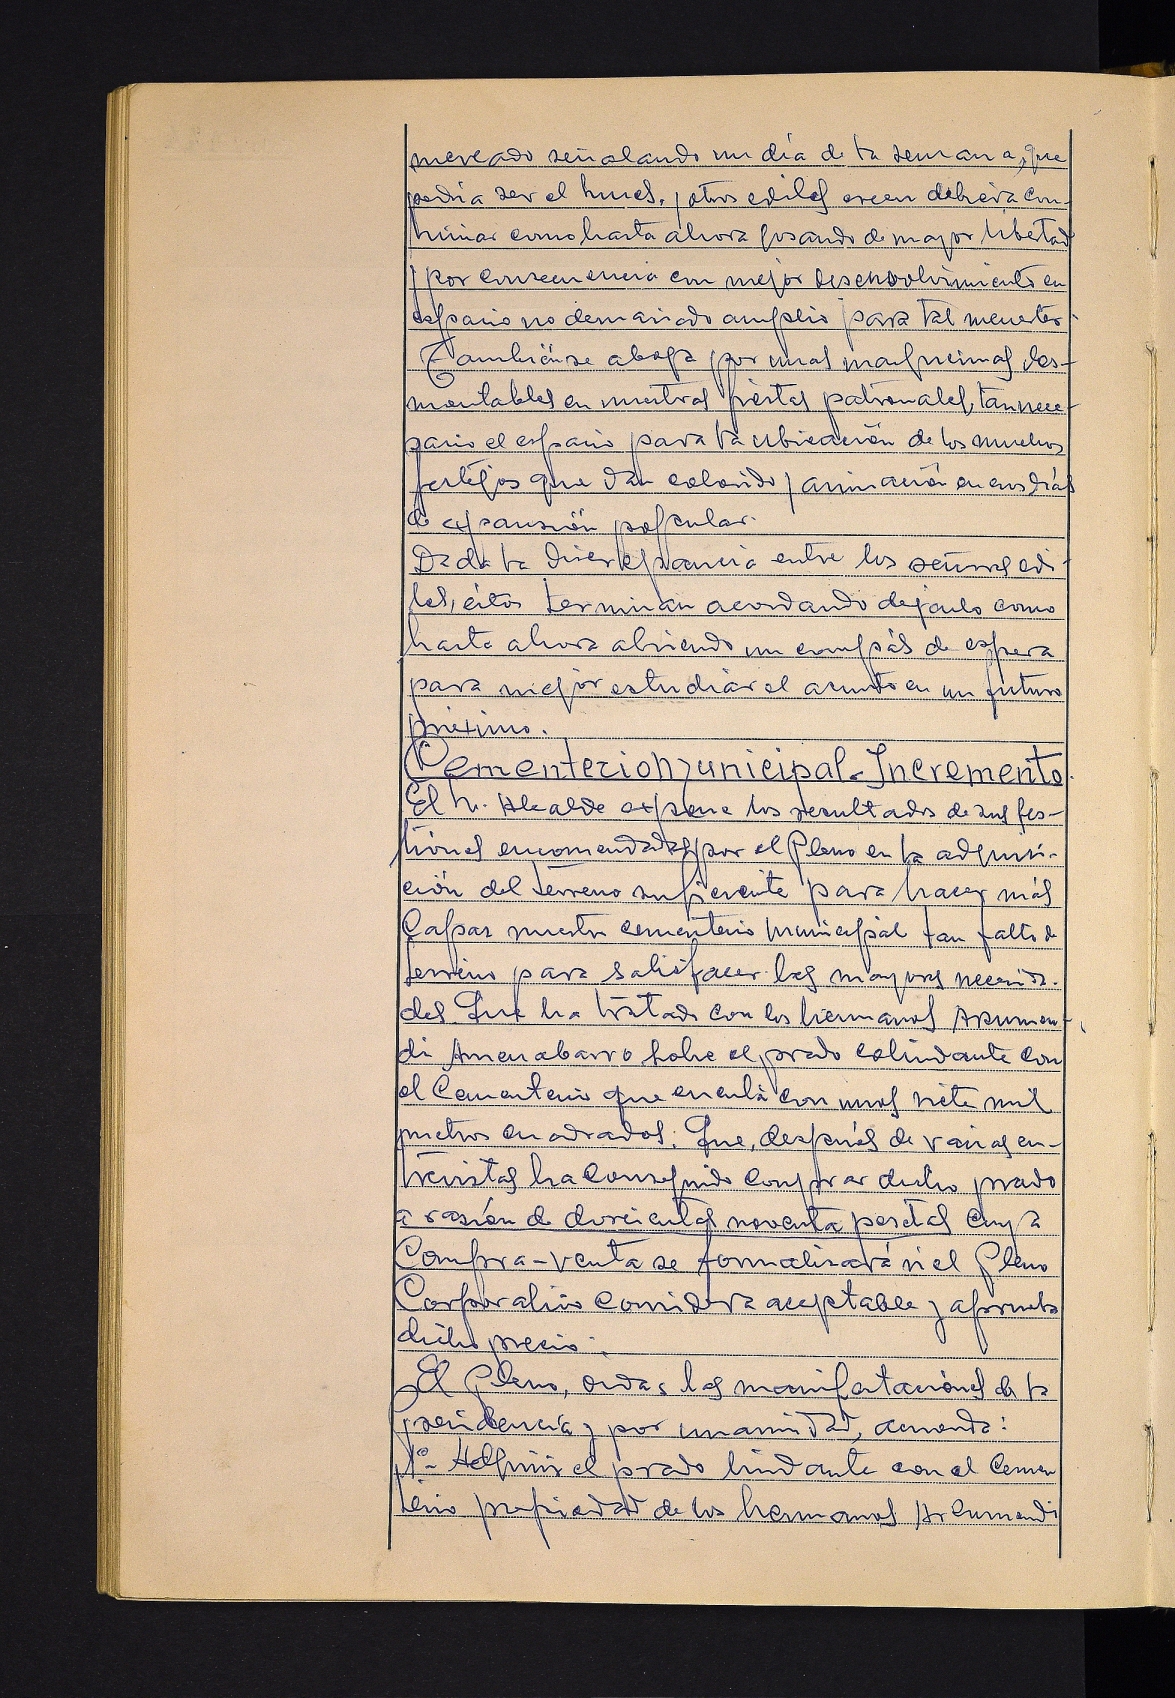 mercado señalando un día de la semana, que
podría ser el lunes. y otros ediles creen debiera con-
tinuar como hasta ahora gozando de mayor libertad
y por consecuencia con mejor desenvolvimiento en
espacio no demasiado amplio para tal menester.
También se aboga por unas marquesinas des-
montables en nuestras fiestas patronales, tan nece-
sario el espacio para la ubicación de los muchos
festejos que dan colorido y animación en esos días
de expansión popular.
Dada la discrepancia entre los señores edi-
les, éstos terminan acordando dejarlo como
hasta ahora abriendo un compás de espera
para mejor estudiar el asunto en un futuro
próximo.
Cementerio Municipal.- Incremento.
El Sr. Alcalde expone los resultados de sus ges-
tiones encomendadas por el Pleno en la adquisi-
ción del terreno suficiente para hacer más
capaz nuestro cementerio municipal tan falto de
terreno para satisfacer las mayores necesida-
des. Que ha tratado con los hermanos Arzumen-
di Amenabarro sobre el prado colindante con
el Cementerio que cuenta con unos siete mil
metros cuadrados: Que, después de varias en-
trevistas ha conseguido comprar dicho prado
a razón de doscientas noventa pesetas cuya
Compra-venta se formalizará si el Pleno
Corporativo considera aceptable y aprueba
dicho precio.
El Pleno, oidas las manifestaciones de la
Presidencia y por unanimidad, acuerda:
1º- Adquirir el prado lindante con el Cemen
terio propiedad de los hermanos